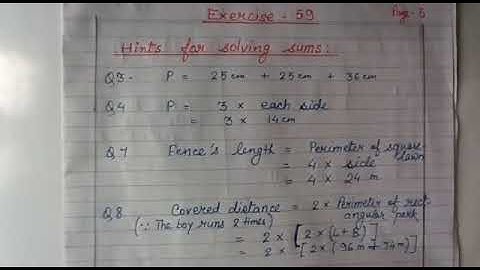 Exercise - 59
Pag - 5
Hints for solving sums:
Q3- P = 25cm + 25cm + 36cm
Q4 P = 3 × each side
= 3 × 14cm
Q7 Fence's length = Perimeter of square lawn
= 4 × side
= 4 × 24 m
Q8 Covered distance = 2 × Perimeter of rect-
(∵ The boy runs 2 times) angular park
= 2 × [2 × (L + B)]
= 2 × [2 × (96m + 74m)]